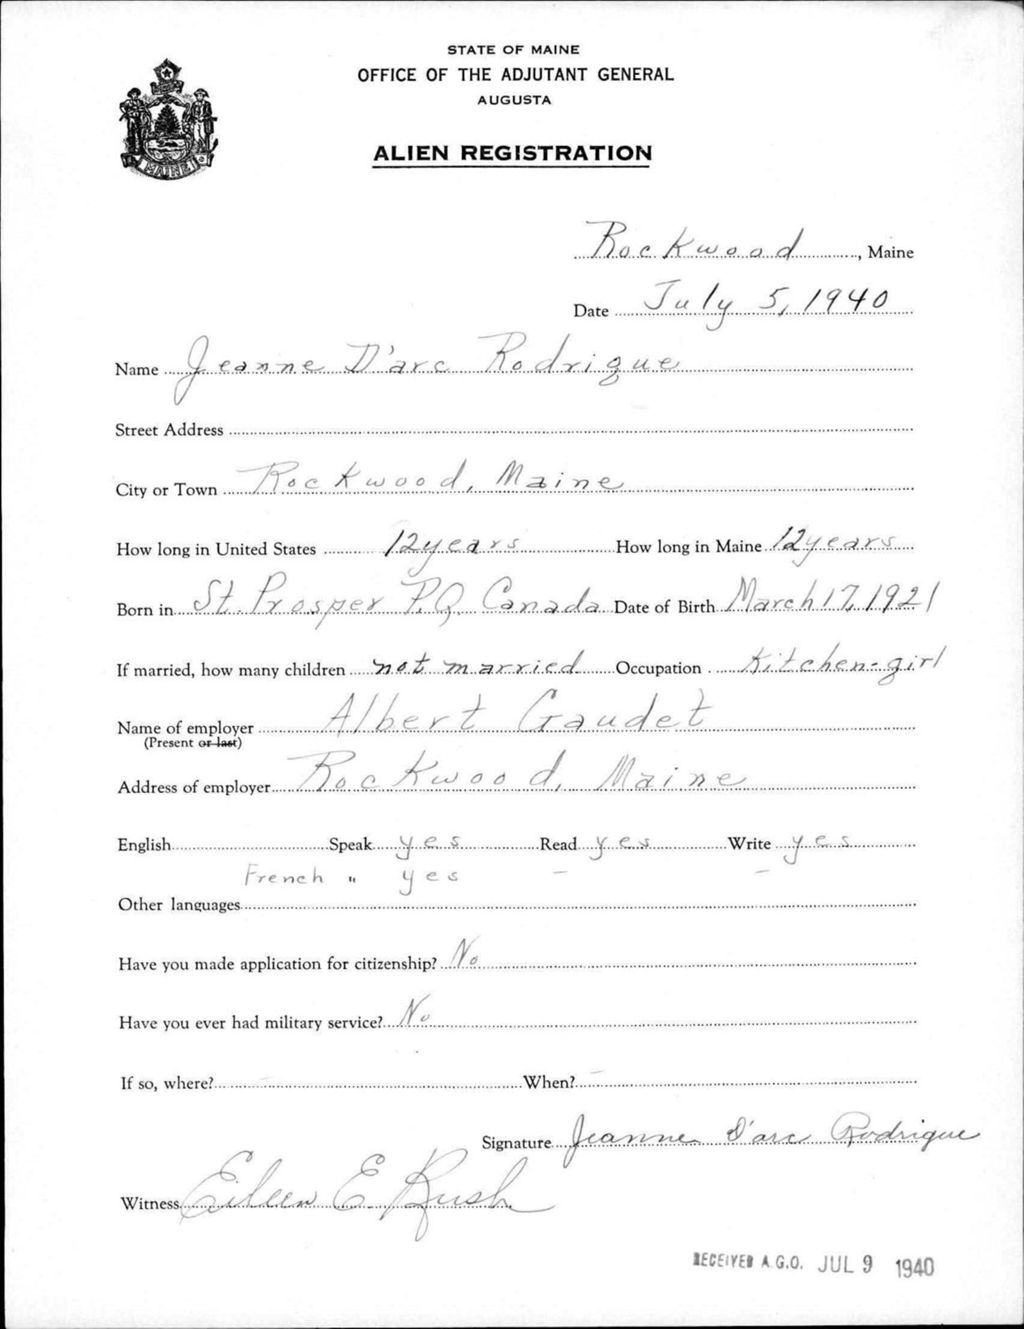 STATE OF MAINE
OFFICE OF THE ADJUTANT GENERAL
AUGUSTA
MAINE
ALIEN REGISTRATION
Rockwood, Maine
Date July 5, 1940
Name Jeanne D'arc Rodrigue
Street Address
City or Town Rockwood, Maine
How long in United States 12 years How long in Maine 12 years
Born in St. Prosper P.Q. Canada Date of Birth March 17, 1921
If married, how many children not married Occupation Kitchen-girl
Name of employer Albert Gaudet
(Present or last)
Address of employer Rockwood, Maine
English Speak yes Read yes Write yes
French " yes - -
Other languages
Have you made application for citizenship? No
Have you ever had military service? No
If so, where? - When? -
Signature Jeanne D'arc Rodrigue
Witness Eileen E. Rush
RECEIVED A.G.O. JUL 9 1940